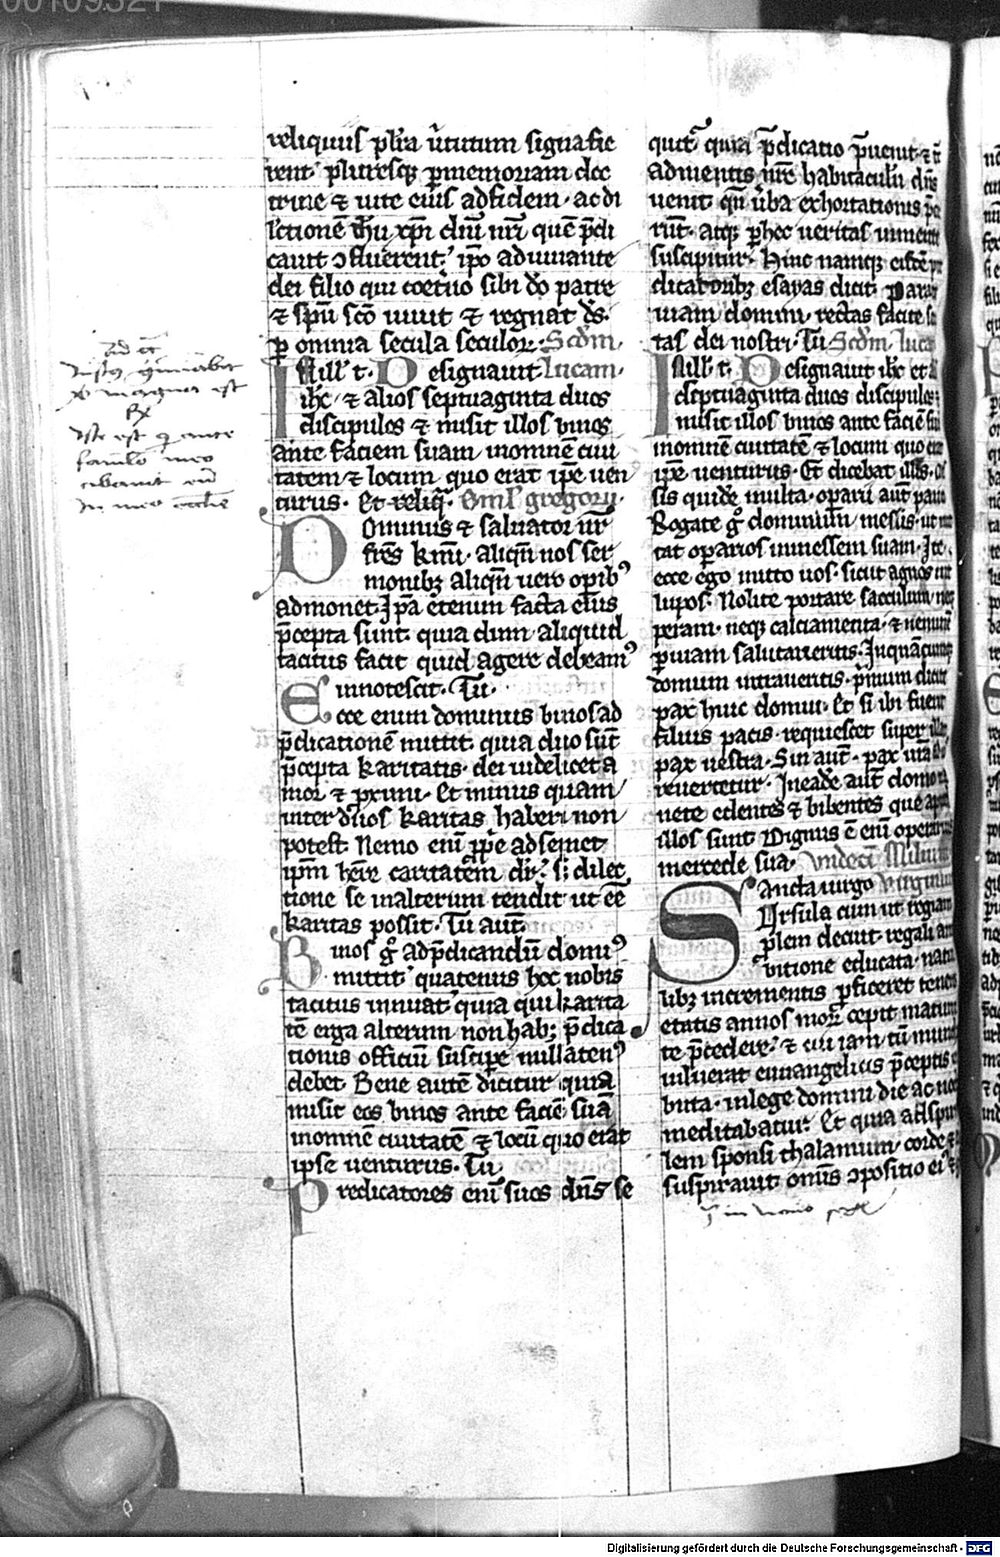 00109321
reliquiis pl'ra v̄tutum signa fie
rent. pluresq; ꝑ memoriam doc
trine ⁊ uite eius ad fidem. ac di
lectionē ih̄u xp̄i dn̄i nr̄i quē p̄di
cauit ↄfluerent. ip̄o adiuuante
dei filio qui coet̄no sibi dō patre
⁊ sp̄u sc̄o uiuit ⁊ regnat ds̄.
ꝑ omnia secula seculoꝝ. Scdm.
In ill' t. Designauit Lucam.
ih̄c ⁊ alios septuaginta duos
discipulos ⁊ misit illos binos
ante faciem suam in omnē ciui
tatem ⁊ locum quo erat ip̄e uen
turus. Et reliq̄. Oml' gregorii.
Dominus ⁊ saluator nr̄
fr̄es k̄mi. aliqn̄ nos ser
monibꝫ aliqn̄ uero oꝑibꝰ
admonet. Ip̄a etenim facta eius
p̄cepta sunt. quia dum aliquid
tacitus facit quid agere debeamꝰ
innotescit. Tu.
Ecce enim dominus binos ad
p̄dicationē mittit. quia duo sūt
p̄cepta karitatis. dei uidelicet a
mor ⁊ p̄ximi. Et minus quam
inter duos karitas haberi non
potest. Nemo eni ꝓp̄e ad semet
ip̄m hēre caritatēm dr̄. sꝫ dilec
tione se in alterum tendit ut eē
karitas possit. Tu aut̄.
Binos g̊ ad p̄dicandū domꝰ
mittit. quatenus hoc nobis
tacitus innuat. quia qui karita
tē erga alterum non habꝫ p̄dica
tionis officiū suscipe nullatenꝰ
debet. Bene autē dicitur. quia
misit eos binos ante faciē suā
in omnē ciuitatē ⁊ locū quo erat
ipse uenturus. Tu
Predicatores eni suos dn̄s se
Ad
Iste est q ante
in
quit̄. quia p̄dicatio p̄uenit. ⁊ t̄
ad mentis nr̄e habitaculū dn̄s
uenit qn̄ v̄ba exhortationis
rūt. atq; ꝑ hec ueritas in mente
suscipitur. Hinc namq; eisdē
dicatoribꝫ esayas dicit. Parate
uiam domini. rectas facite se
tas dei nostri. Tu Scdm. luca
In ill' t. Designauit ih̄c et
septuaginta duos discipulos
misit illos binos ante faciē
in omnē ciuitatē ⁊ locum quo erat
ip̄e uenturus. Et dicebat illis.
sis quidē multa. oꝑarii aut̄ pauci
Rogate g̊ dominum messis. ut mit
tat oꝑarios in messem suam. Ite.
ecce ego mitto uos. sicut agnos int̄
lupos. Nolite portare sacculum. neq;
peram. neq; calciamenta. ⁊ neminē
ꝑ uiam salutaueritis. In quācumq;
domum intraueritis. p̄mum dicite
pax huic domui. Et si ibi fuerit
filius pacis. requiescet super illum
pax uestra. Sin aut̄. pax ur̄a
reuertetur. In eadē aut̄ domo
nete edentes ⁊ bibentes que apud
illos sunt. Dignus ē eni operarius
mercede sua. Undeci Milium
Sancta uirgo Virginum
Vrsula cum ut regiam
plem decuit. regali am
bitione educata. nata
libꝫ incrementis ꝑficeret. teneros
etatis annos moꝝ cepit maturita
te p̄cedere. ⁊ cui iam tū mundus
uiluerat. euuangelicis p̄ceptis
buta. in lege domini die ac nocte
meditabatur. Et quia ad spiri
lem sponsi thalamum corde
suspirauit. omnis ↄpositio
Digitalisierung gefördert durch die Deutsche Forschungsgemeinschaft - DFG